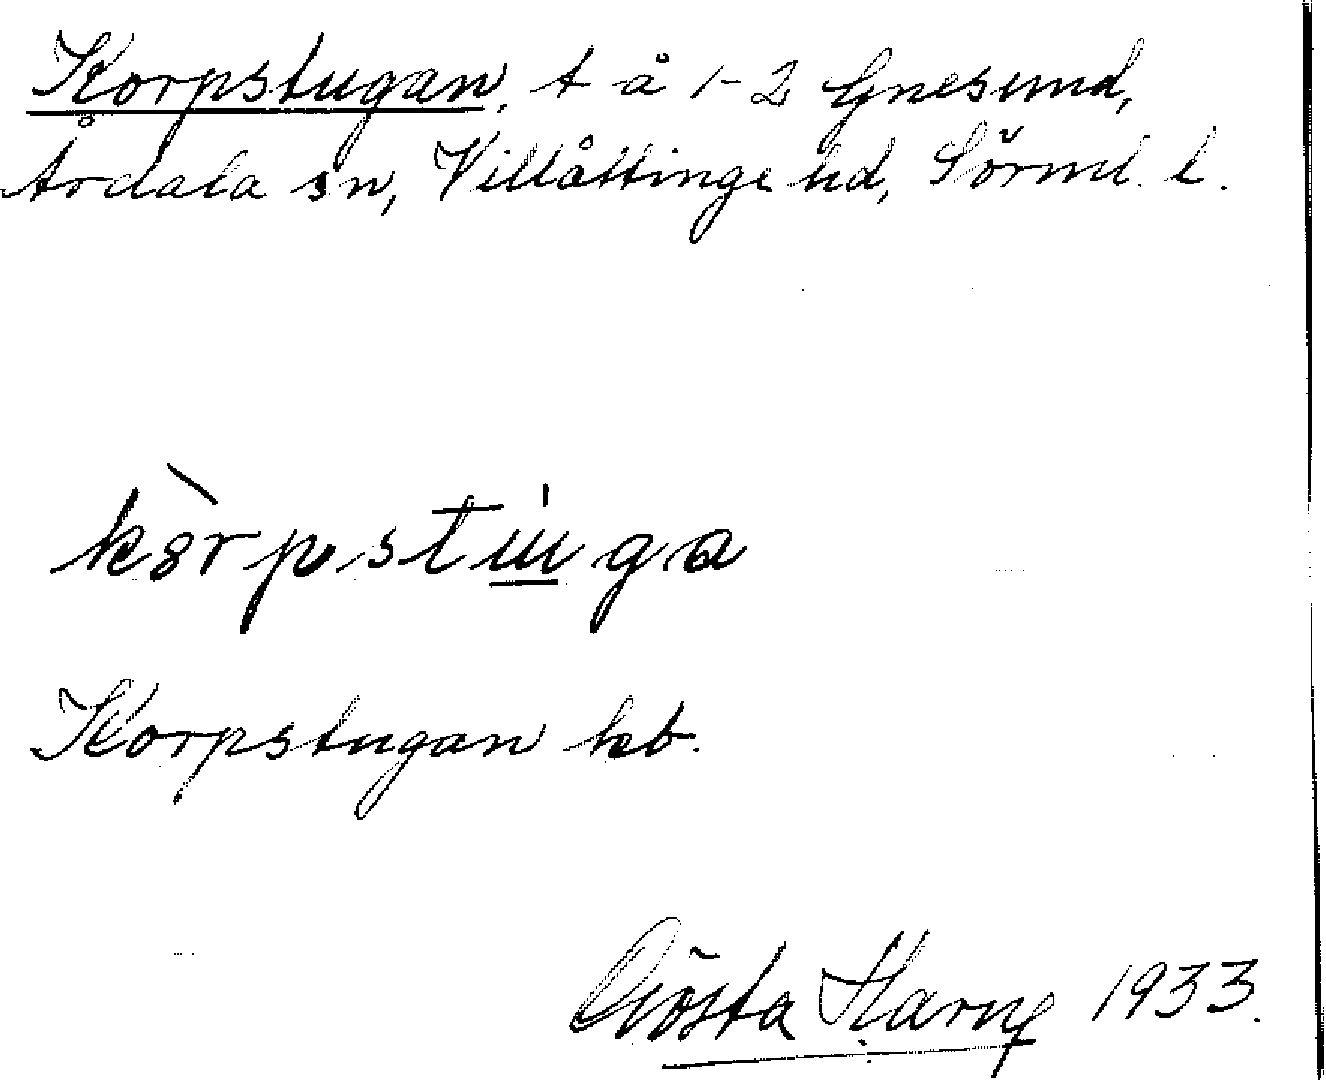 Korpstugan, t å 1-2 Gnesund,
Årdala sn, Villåttinge hd, Sörml. l.
kòrpstu̲̍ga
Korpstugan kb.
Gösta Harng 1933.